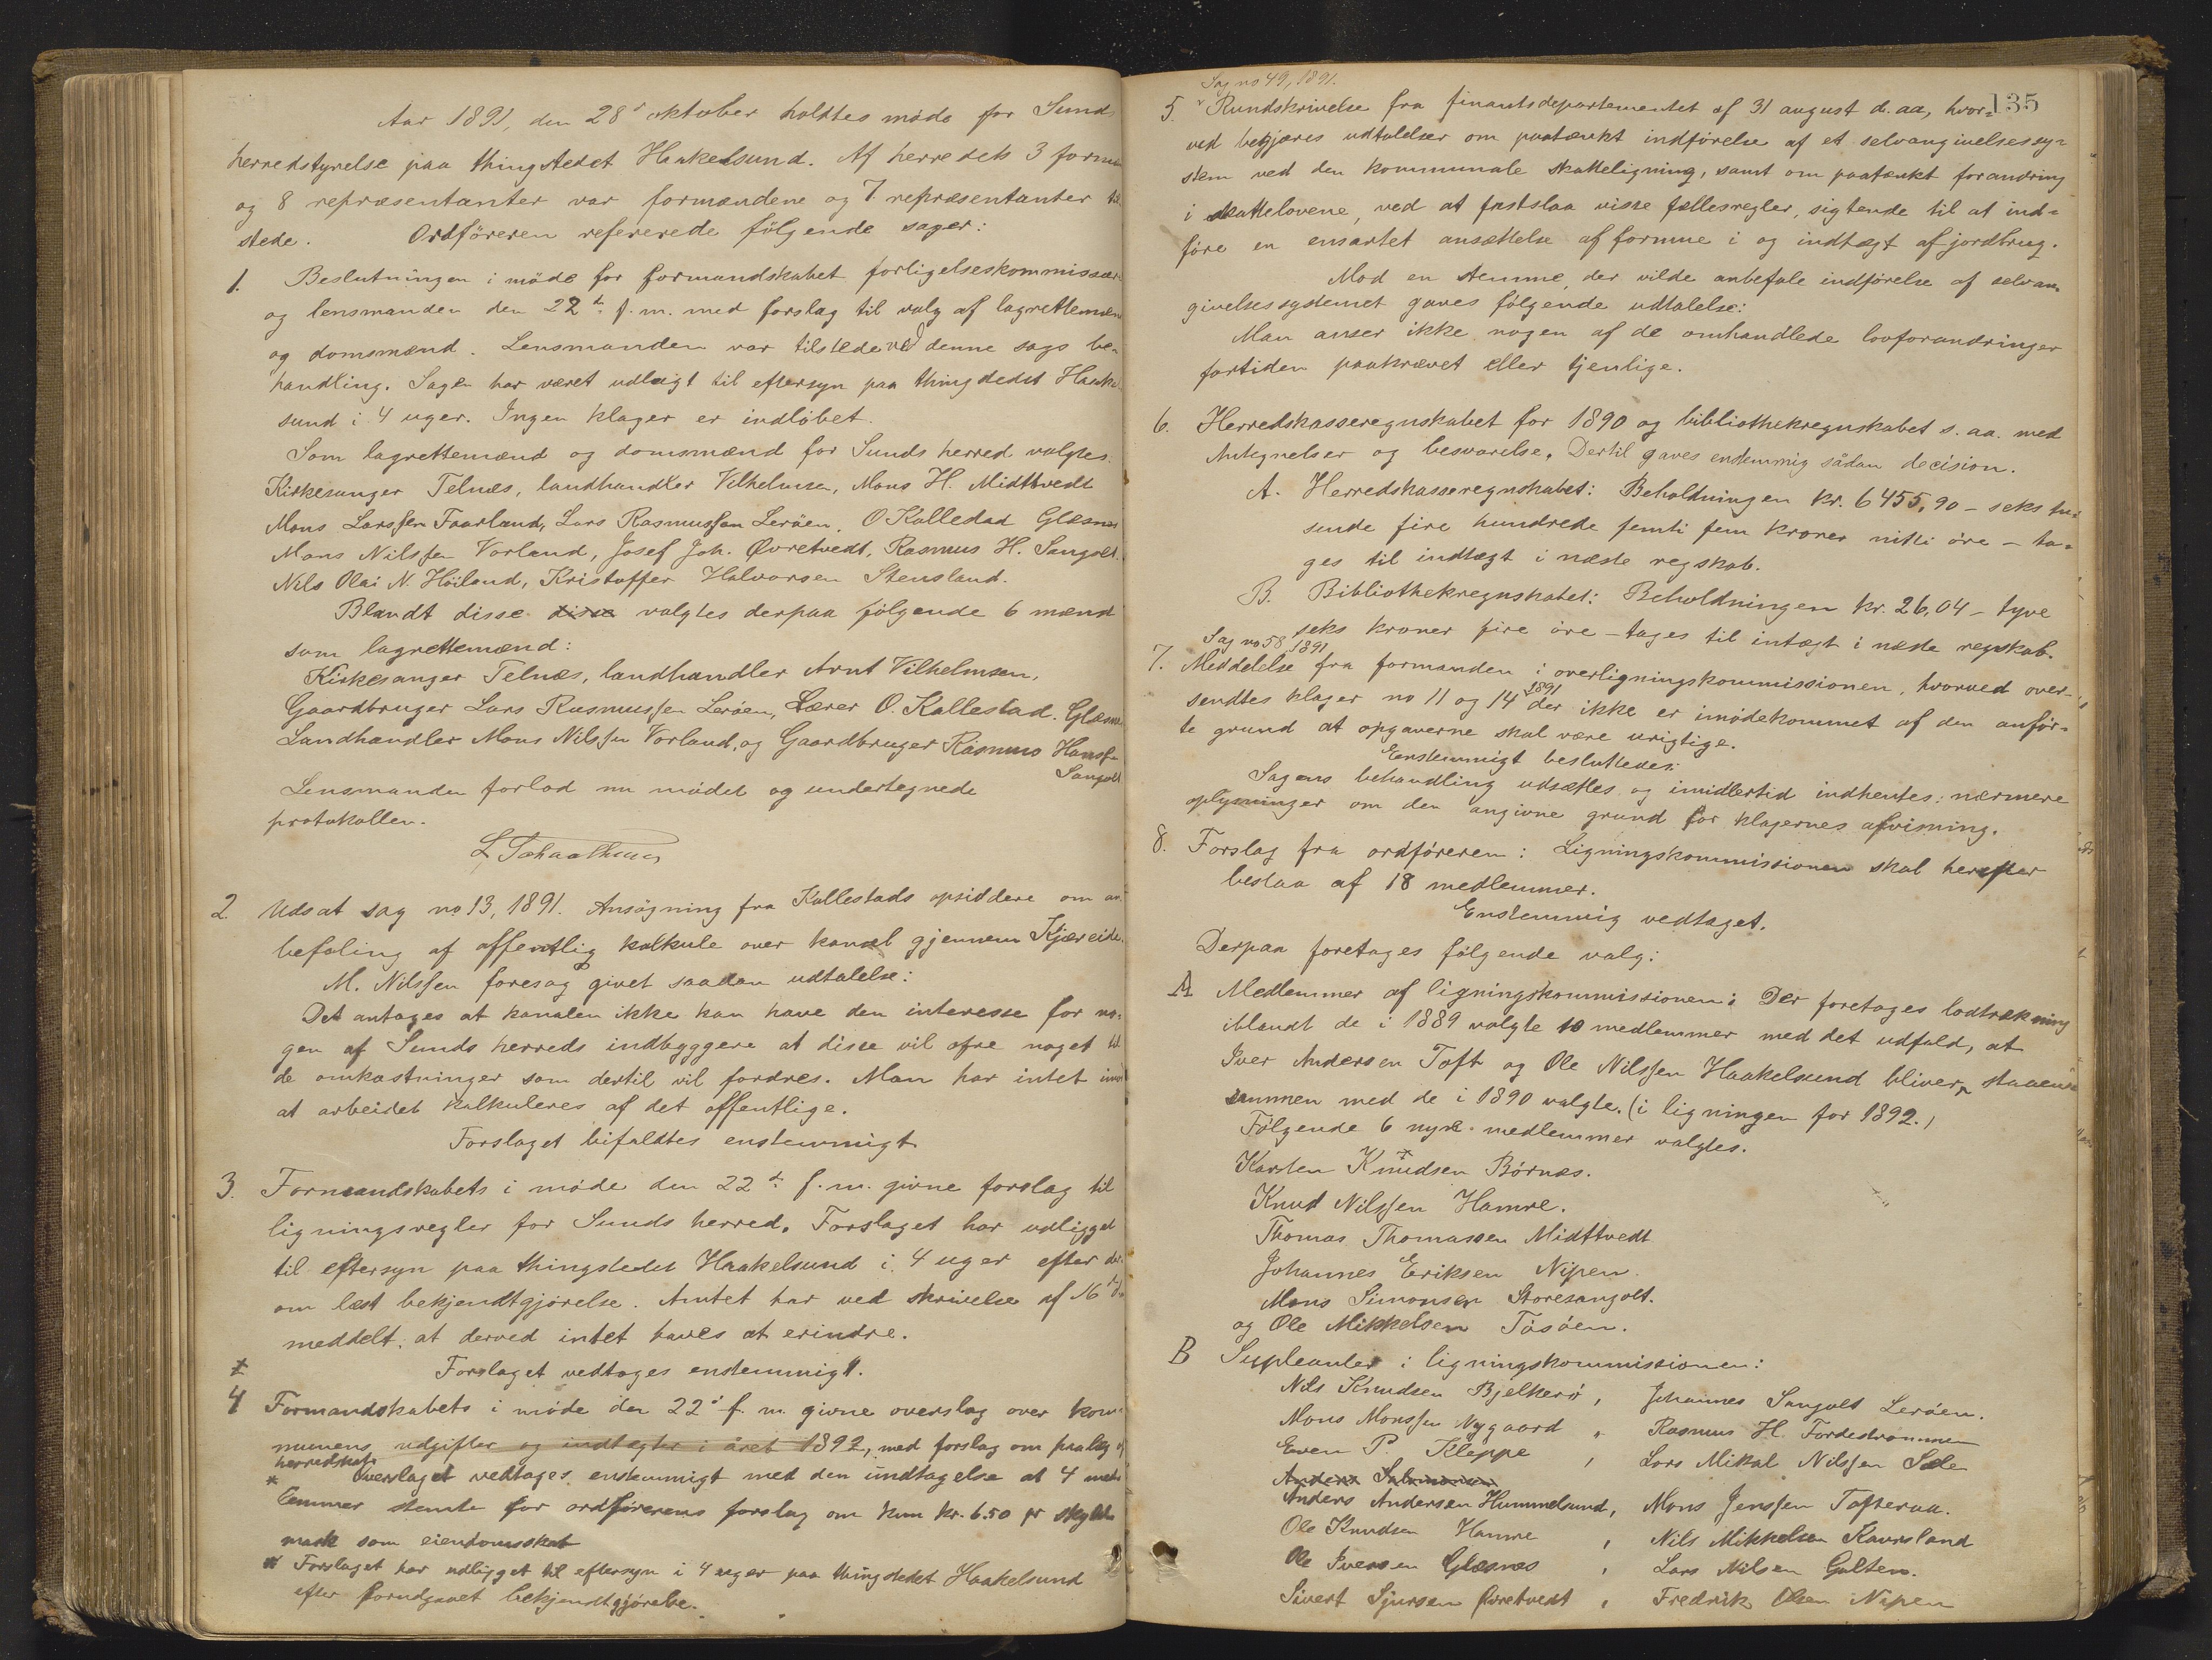 Aar 1891, den 28' oktober holdtes møde for Sunds
herredstyrelse paa thingstedet Haakelsund. Af herredets 3 formænd
og 8 repræsentanter var formændene og 7 repræsentanter til
stede. Ordføreren refererede følgende sager:
1. Beslutningen i møde for formandskabet forligelseskommissær
og lensmanden den 22d. f.m. med forslag til valg af lagrettemæn
og domsmænd. Lensmanden var tilstede ved denne sags be-
handling. Sagen har været udlagt til eftersyn paa thingstedet Haakel
sund i 4 uger. Ingen klager er indløbet.
Som lagrettemænd og domsmænd for Sunds herred valgtes.
Kirkesanger Telnæs, landhandler Vilhelmsen, Mons H. Midttvedt
Mons Larssen Faarland, Lars Rasmussen Lerøen, O Kallestad Glæsnæs
Mons Nilssen Vorland, Josef Joh. Øvretvedt, Rasmus H. Sangolt.
Nils Olai N. Høiland, Kristoffer Halvorsen Stensland.
Blandt disse disse valgtes derpaa følgende 6 mænd
som lagrettemænd:
Kirkesanger Telnæs, landhandler Arnt Vilhelmsen,
Gaardbruger Lars Rasmussen Lerøen, Lærer O. Kallestad. Glæsnæs
Landhandler Mons Nilssen Vorland, og Gaardbruger Rasmus Hanss
Sangolt
Lensmanden forlod nu mødet og undertegnede
protokollen.
2. Udsat sag no 13, 1891. Ansøgning fra Kallestads opsiddere om an-
befaling af offentlig kalkule over kanal gjennem Kjæreide.
M. Nilssen foresog givet saadan udtalelse:
Det antages at kanalen ikke kan have den interesse for no-
gen af Sunds herreds indbyggere at disse vil ofre noget til
de omkostninger som dertil vil fordres. Man har intet imod
at arbeidet kalkuleres af det offentlige.
Forslaget bifaldtes enstemmigt
3. Formandskabets i møde den 22d. f.m. givne forslag til
ligningsregler for Sunds herred. Forslaget har udligget
til eftersyn paa thingstedet Haakelsund i 4 uger efter der-
om læst bekjendtgjørelse. Amtet har ved skrivelse af 16d ds
meddelt, at derved intet haves at erindre.
Forslaget vedtages enstemmigt.
4 Formandskabets i møde den 22d f.m. givne overslag over kom-
munens udgifter og indtægter i året 1892, med forslag om paalæg af
herredskat.
* Overslaget vedtages enstemmigt med den undtagelse at 4 med
lemmer stemte for ordførerens forslag om kun kr. 6.50 pr skyld-
mark som eiendomsskat
* Forslaget har udligget til eftersyn i 4 uger paa thingstedet Haakelsund
efter forudgaaet bekjendtgjørelse.
135
Sag no 49, 1891.
5. Rundskrivelse fra finantsdepartementet af 31 august d. aa, hvor-
ved begjæres udtalelser om paatænkt indførelse af et selvangivelsessy-
stem ved den kommunale skatteligning, samt om paatænkt forandring
i skattelovene, ved at fastslaa visse fællesregler, sigtende til at ind-
føre en ensartet ansættelse af formue i og indtægt af jordbrug.
Mod en stemme, der vilde anbefale indførelse af selvan-
givelsessystemet gaves følgende udtalelse:
Man anser ikke nogen af de omhandlede lovforandringer
fortiden paakrævet eller tjenlige.
6. Herredskasseregnskabet for 1890 og bibliothekregnskabet s. aa. med
Antegnelser og besvarelse. Dertil gaves enstemmig sådan decision.
A. Herredskasseregnskabet: Beholdningen kr. 6455,90 - seks tu-
sinde fire hundrede femti fem kroner nitti øre - ta-
ges til indtægt i næste regskab.
B. Bibliothekregnskabet: Beholdningen kr. 26,04 - tyve
seks kroner fire øre - tages til intægt i næste regskab.
Sag no 58 1891
7. Meddelelse fra formanden i overligningskommissionen, hvorved over-
sendtes klager no 11 og 14 1891 der ikke er imødekommet af den anfør-
te grund at opgaverne skal være urigtige.
Enstemmigt besluttedes:
Sagens behandling udsættes og imidlertid indhentes nærmere
oplysninger om den angivne grund for klagernes afvisning.
8. Forslag fra ordføreren: Ligningskommissionen skal herefter
bestaa af 18 medlemmer.
Enstemmig vedtaget.
Derpaa foretages følgende valg:
A Medlemmer af ligningskommissionen: Der foretages lodtrækning
iblandt de i 1889 valgte 10 medlemmer med det udfald, at
Iver Andersen Toft og Ole Nilssen Haakelsund bliver staaende
sammen med de i 1890 valgte. (i ligningen for 1892.)
Følgende 6 nye medlemmer valgtes.
Karsten Knudsen Børnæs.
Knud Nilssen Hamre.
Thomas Thomassen Midttvedt
Johannes Eriksen Nipen.
Mons Simonsen Storesangolt.
og Ole Mikkelsen Tøsøen.
B Supleanter i ligningskommissionen:
Nils Knudsen Bjelkerø, Johannes Sangolt Lerøen.
Mons Monssen Nygaard, Rasmus H. Fordestrømmen
Even P. Kleppe, Lars Mikal Nilssen Sæle
Anders Salomonsen
Anders Andersen Hummelsund, Mons Jenssen Tofteraa.
Ole Knudsen Hamre, Nils Mikkelsen Kaursland
Ole Iversen Glæsnæs, Lars Nilsen Golten.
Sivert Sjursen Øvretvedt, Fredrik Olsen Nipen